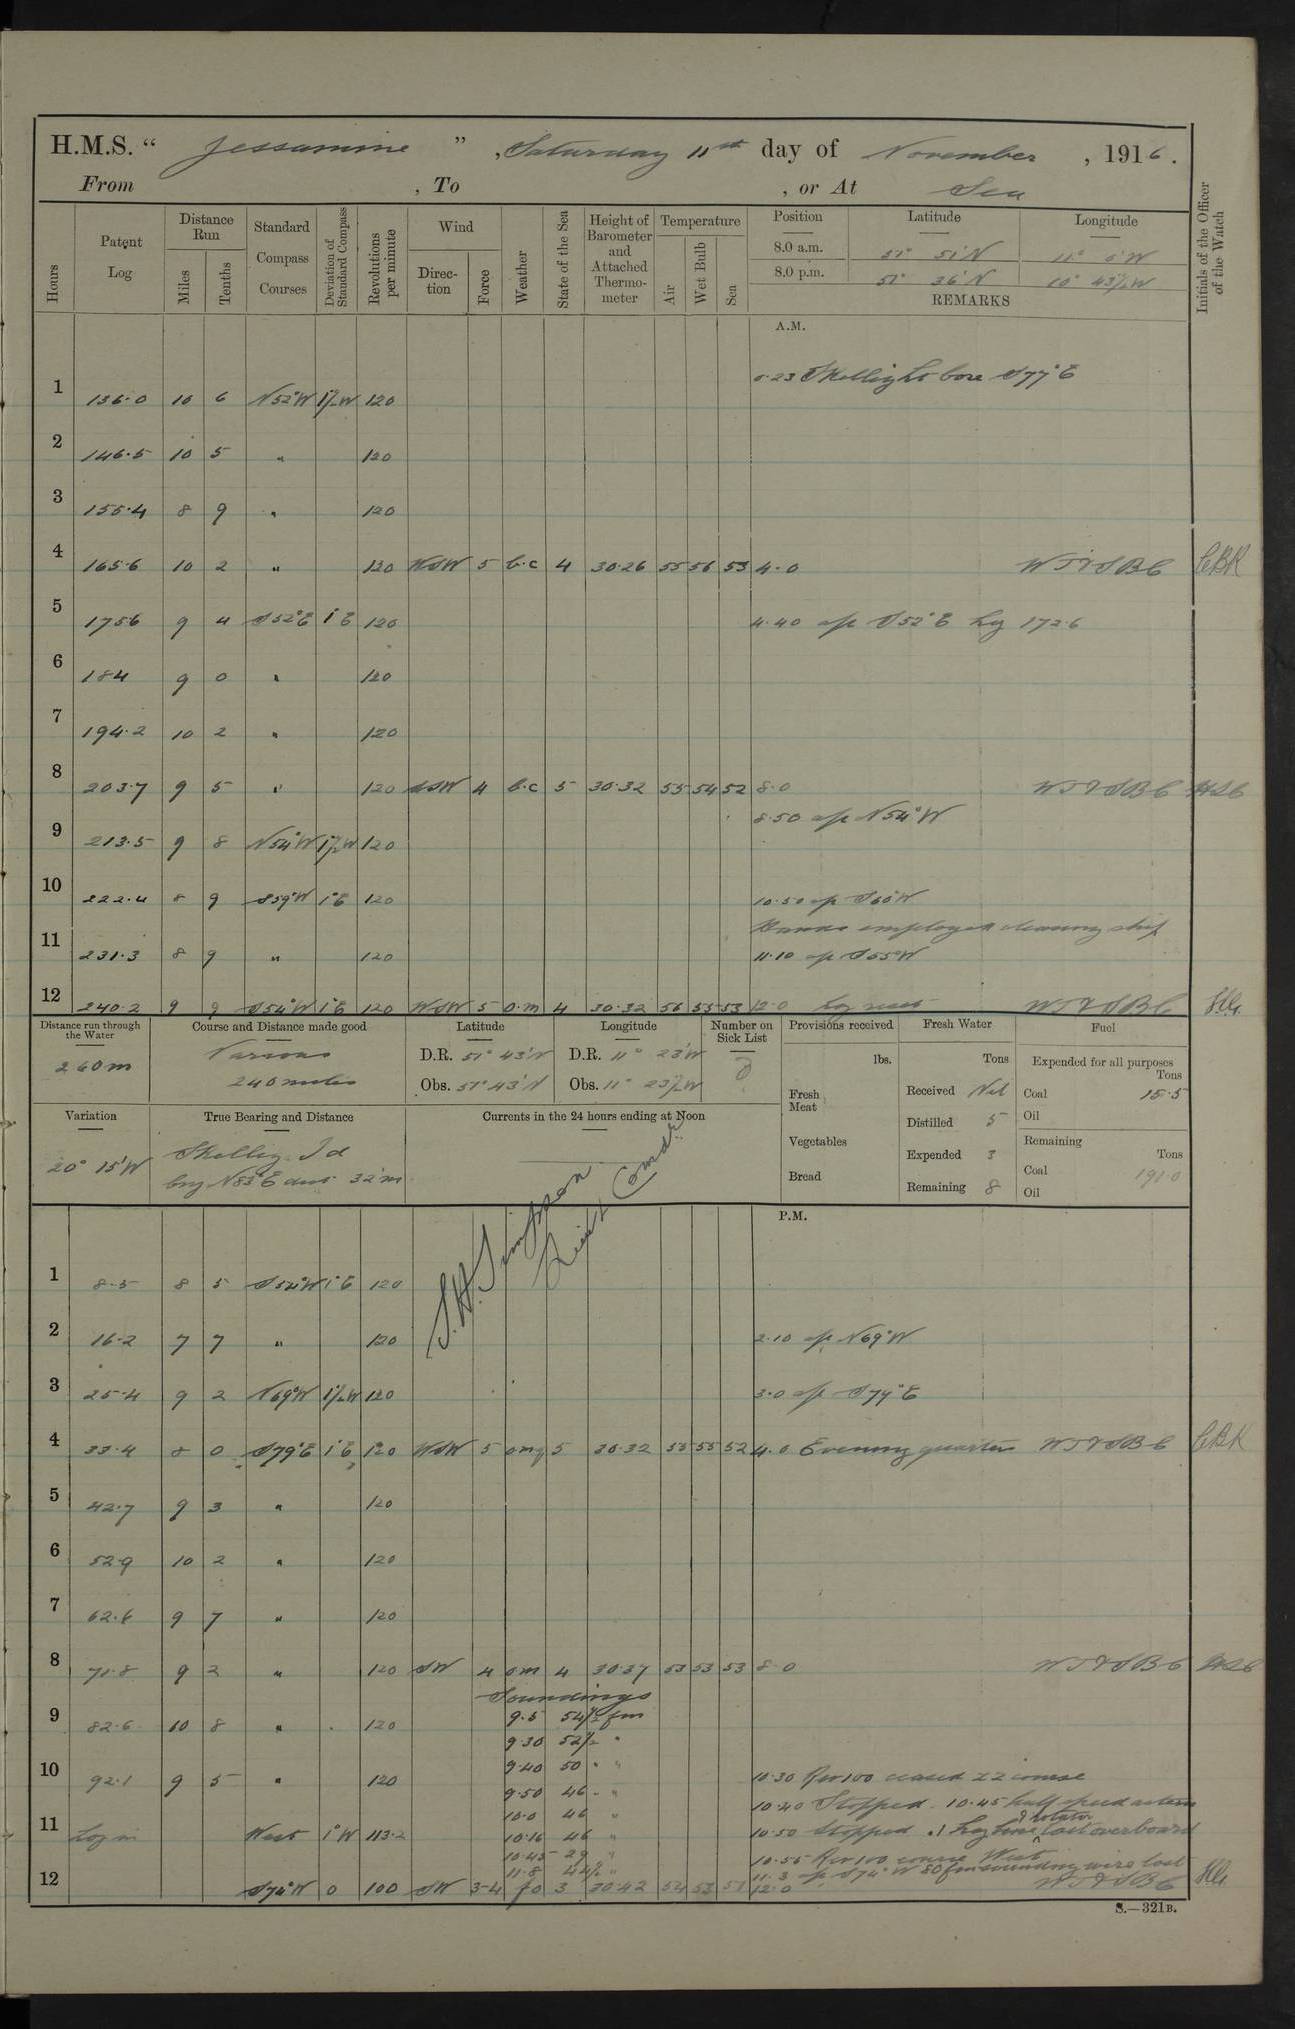 H.M.S. “ Jessamine ” , Saturday 11th day of November , 1916.
From , To , or At Sea
Hours
Patent Log
Distance Run
Miles
Tenths
Standard Compass Courses
Deviation of Standard Compass
Revolutions per minute
Wind
Direction
Force
Weather
State of the Sea
Height of Barometer and Attached Thermometer
Temperature
Air
Wet Bulb
Sea
Position Latitude Longitude
8.0 a.m. 51° 51'N 11° 6'W
8.0 p.m. 51° 36'N 10° 43½W
REMARKS
Initials of the Officer of the Watch
A.M.
0.23 Skellig Lt bore S77°E
1 136.0 10 6 N52°W 1½W 120
2 146.5 10 5 " 120
3 155.4 8 9 " 120
4 165.6 10 2 " 120 WSW 5 b.c 4 30.26 55 56 53 4.0 WT&SBC CBK
5 175.6 9 4 S52°E 1°E 120 4.40 a/c S52°E Log 172.6
6 184 9 0 " 120
7 194.2 10 2 " 120
8 203.7 9 5 " 120 WSW 4 b.c 5 30.32 55 54 52 8.0 WT&SBC
8.50 a/c N54°W
9 213.5 9 8 N54°W 1½W 120
10 222.4 8 9 S59°W 1°E 120 10.50 a/c S60°W
Hands employed cleaning ship
11 231.3 8 9 " 120 11.10 a/c S55°W
12 240.2 9 9 S54°W 1°E 120 WSW 5 o.m 4 30.32 56 55 53 12.0 Log reset WT&SBC
Distance run through the Water
240m
Course and Distance made good
Various
240 miles
Latitude
D.R. 51° 43'N
Obs. 51° 43'N
Longitude
D.R. 11° 23'W
Obs. 11° 23½W
Number on Sick List
Provisions received
lbs.
Fresh Meat
Vegetables
Bread
Fresh Water
Tons
Received Nil
Distilled 5
Expended 3
Remaining 8
Fuel
Expended for all purposes
Tons
Coal 15.5
Oil
Remaining
Tons
Coal 191.0
Oil
Variation
20° 15'W
True Bearing and Distance
Skellig Id
brg N83°E dist 32'm
Currents in the 24 hours ending at Noon
S.H. Simpson
Lieut Comdr
P.M.
1 8.5 8 5 S54°W 1°E 120
2 16.2 7 7 " 120 2.10 a/c N69°W
3 25.4 9 2 N69°W 1½W 120 3.0 a/c S79°E
4 33.4 8 0 S79°E 1°E 120 WSW 5 omq 5 30.32 55 55 52 4.0 Evening quarters WT&SBC CBK
5 42.7 9 3 " 120
6 52.9 10 2 " 120
7 62.6 9 7 " 120
8 71.8 9 2 " 120 SW 4 om 4 30.37 53 53 53 8.0 WT&SBC
Soundings
9 82.6 10 8 " 120 9.5 54½ fm
9.30 52½ "
10 92.1 9 5 " 120 9.40 50 " " 10.30 Rev 100 ceased ZZ course
9.50 46 " 10.40 Stopped. 10.45 half speed astern
10.0 46 "
11 Log in West 1°W 113.2 10.16 46 " 10.50 Stopped. 1 Log line & rotator lost overboard
10.45 29 " 10.55 Rev 100 course West
11.8 44½ " 11.3 a/c S74°W 80 fm sounding wire lost
12 S74°W 0 100 SW 3-4 fo 3 30.42 54 53 51 12.0 WT&SBC
S.—321B.